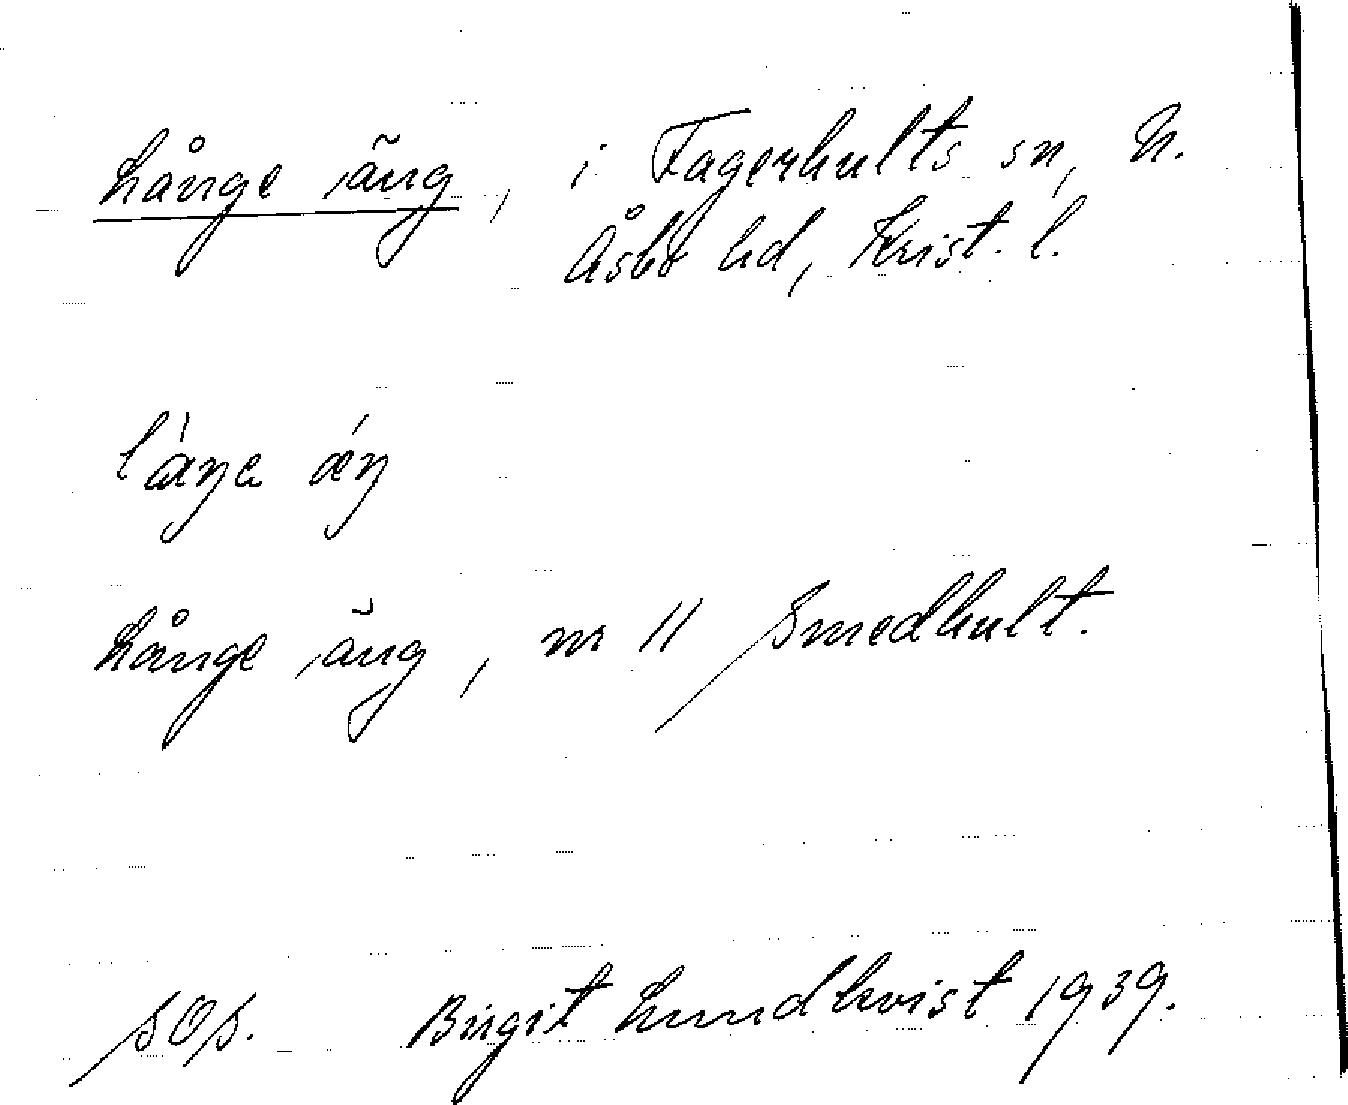 Långe äng, i Fagerhults sn, N.
Åsbo hd, Krist. l.
låŋe æŋ
Långe äng, nr 11 Smedhult.
SOS. Birgit Lundkvist 1939.